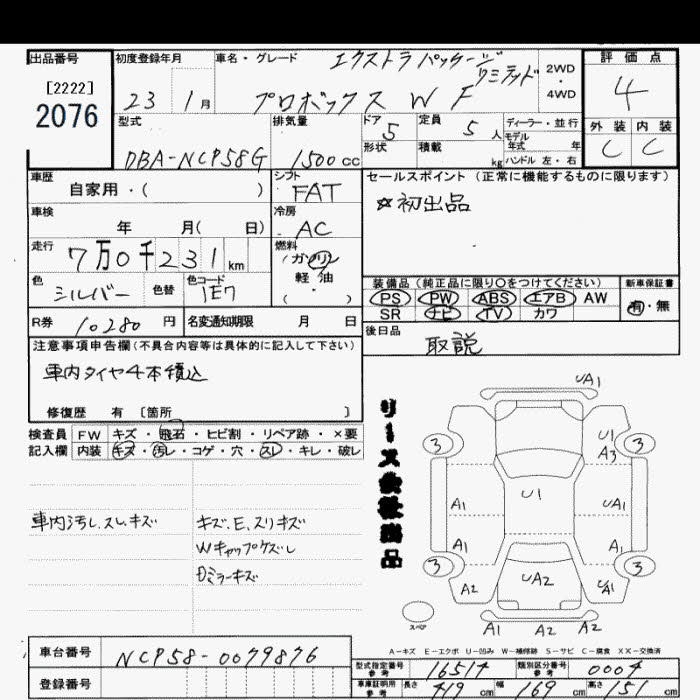 出品番号
[2222]
2076
初度登録年月
23 1月
車名・グレード
エクストラパッケージ
リミテッド
プロボックス W F
2WD
・
4WD
評価点
4
外装 内装
C C
型式
DBA-NCP58G
排気量
1500 cc
ドア 5
形状
定員 5 人
積載 kg
ディーラー・並行
モデル
年式 年
ハンドル 左・右
車歴
自家用・( )
シフト
FAT
セールスポイント(正常に機能するものに限ります)
☆初出品
車検
年 月( 日)
冷房
AC
走行
7万0千231km
燃料
ガソリン
軽油
( ・ )
色
シルバー
色替
色コード
1E7
装備品(純正品に限り○をつけてください)
PS PW ABS エアB AW
SR ナビ TV カワ
新車保証書
有・無
R券 10280 円
名変通知期限 月 日
後日品
取説
注意事項申告欄(不具合内容等は具体的に記入して下さい)
車内タイヤ4本積込
修復歴 有 [箇所 ]
検査員
記入欄
FW キズ・飛石・ヒビ割・リペア跡・×要
内装 キズ・汚レ・コゲ・穴・スレ・キレ・破レ
車内汚レ、スレ、キズ
キズ、E、スリキズ
Wキャップケズレ
Dミラーキズ
リース
品
UA1
3
U1
A3
3
A1
U1
UA1
A1
A1
3
3
A2
UA2
UA1
A1
A2
A2
スペア
A-キズ E-エクボ U-凹み W-補修跡 S-サビ C-腐食 XX-交換済
車台番号
NCP58-0079876
登録番号
型式指定番号
参考
16514
類別区分番号
参考
0004
車庫証明用
参考
長さ 419 cm 幅 169 cm 高さ 151 cm